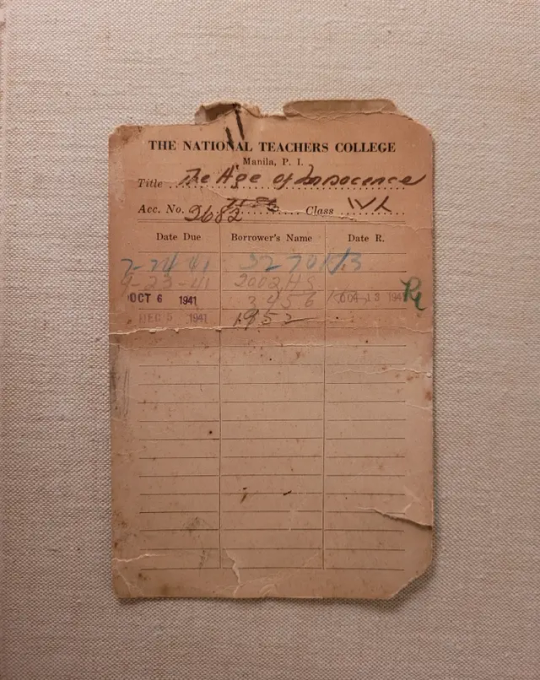 THE NATIONAL TEACHERS COLLEGE
Manila, P. I.
Title The Age of Innocence
Acc. No. 2682 Class
Date Due Borrower's Name Date R.
41
9-23-41 2002HS
OCT 6 1941 3456 1941
DEC 5 1941